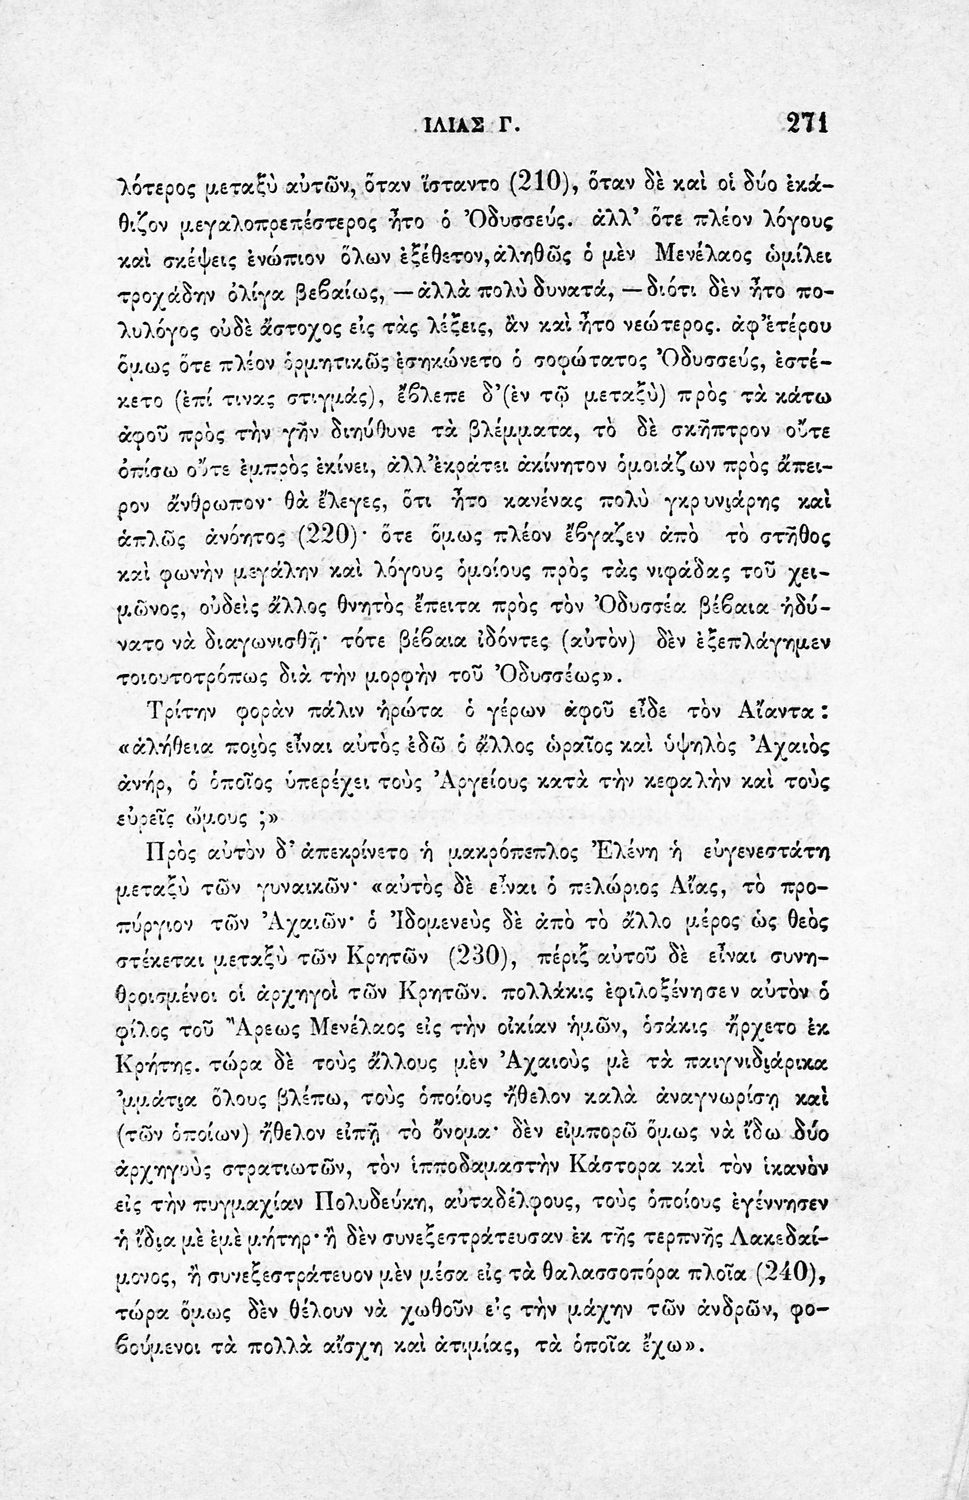 ΙΛΙΑΣ Γ. 271
λότερος μεταξὺ αὐτῶν, ὅταν ἵσταντο (210), ὅταν δὲ καὶ οἱ δύο ἐκά-
θιζον μεγαλοπρεπέστερος ἦτο ὁ Ὀδυσσεύς. ἀλλ’ ὅτε πλέον λόγους
καὶ σκέψεις ἐνώπιον ὅλων ἐξέθετον, ἀληθῶς ὁ μὲν Μενέλαος ὡμίλει
τροχάδην ὀλίγα βεβαίως, — ἀλλὰ πολὺ δυνατά, — διότι δὲν ἦτο πο-
λυλόγος οὐδὲ ἄστοχος εἰς τὰς λέξεις, ἂν καὶ ἦτο νεώτερος. ἀφ’ ἑτέρου
ὅμως ὅτε πλέον ὁρμητικῶς ἐσηκώνετο ὁ σοφώτατος Ὀδυσσεύς, ἐστέ-
κετο (ἐπί τινας στιγμάς), ἔβλεπε δ’ (ἐν τῷ μεταξὺ) πρὸς τὰ κάτω
ἀφοῦ πρὸς τὴν γῆν διηύθυνε τὰ βλέμματα, τὸ δὲ σκῆπτρον οὔτε
ὀπίσω οὔτε ἐμπρὸς ἐκίνει, ἀλλ’ ἐκράτει ἀκίνητον ὁμοιάζων πρὸς ἄπει-
ρον ἄνθρωπον· θὰ ἔλεγες, ὅτι ἦτο κανένας πολὺ γκρυνι̯άρης καὶ
ἁπλῶς ἀνόητος (220)· ὅτε ὅμως πλέον ἔβγαζεν ἀπὸ τὸ στῆθος
καὶ φωνὴν μεγάλην καὶ λόγους ὁμοίους πρὸς τὰς νιφάδας τοῦ χει-
μῶνος, οὐδεὶς ἄλλος θνητὸς ἔπειτα πρὸς τὸν Ὀδυσσέα βέβαια ἠδύ-
νατο νὰ διαγωνισθῇ· τότε βέβαια ἰδόντες (αὐτὸν) δὲν ἐξεπλάγημεν
τοιουτοτρόπως διὰ τὴν μορφὴν τοῦ Ὀδυσσέως».
Τρίτην φορὰν πάλιν ἠρώτα ὁ γέρων ἀφοῦ εἶδε τὸν Αἴαντα:
«ἀλήθεια ποι̯ὸς εἶναι αὐτὸς ἐδῶ ὁ ἄλλος ὡραῖος καὶ ὑψηλὸς Ἀχαιὸς
ἀνήρ, ὁ ὁποῖος ὑπερέχει τοὺς Ἀργείους κατὰ τὴν κεφαλὴν καὶ τοὺς
εὐρεῖς ὤμους ;»
Πρὸς αὐτὸν δ’ ἀπεκρίνετο ἡ μακρόπεπλος Ἑλένη ἡ εὐγενεστάτη
μεταξὺ τῶν γυναικῶν· «αὐτὸς δὲ εἶναι ὁ πελώριος Αἴας, τὸ προ-
πύργιον τῶν Ἀχαιῶν· ὁ Ἰδομενεὺς δὲ ἀπὸ τὸ ἄλλο μέρος ὡς θεὸς
στέκεται μεταξὺ τῶν Κρητῶν (230), πέριξ αὐτοῦ δὲ εἶναι συνη-
θροισμένοι οἱ ἀρχηγοὶ τῶν Κρητῶν. πολλάκις ἐφιλοξένησεν αὐτὸν ὁ
φίλος τοῦ Ἄρεως Μενέλαος εἰς τὴν οἰκίαν ἡμῶν, ὁσάκις ἤρχετο ἐκ
Κρήτης. τώρα δὲ τοὺς ἄλλους μὲν Ἀχαιοὺς μὲ τὰ παιγνιδι̯άρικα
’μμάτι̯α ὅλους βλέπω, τοὺς ὁποίους ἤθελον καλὰ ἀναγνωρίσῃ καὶ
(τῶν ὁποίων) ἤθελον εἰπῇ τὸ ὄνομα· δὲν εἰμπορῶ ὅμως νὰ ἴδω δύο
ἀρχηγοὺς στρατιωτῶν, τὸν ἱπποδαμαστὴν Κάστορα καὶ τὸν ἱκανὸν
εἰς τὴν πυγμαχίαν Πολυδεύκη, αὐταδέλφους, τοὺς ὁποίους ἐγέννησεν
ἡ ἴδι̯α μὲ ἐμὲ μήτηρ· ἢ δὲν συνεξεστράτευσαν ἐκ τῆς τερπνῆς Λακεδαί-
μονος, ἢ συνεξεστράτευον μὲν μέσα εἰς τὰ θαλασσοπόρα πλοῖα (240),
τώρα ὅμως δὲν θέλουν νὰ χωθοῦν εἰς τὴν μάχην τῶν ἀνδρῶν, φο-
βούμενοι τὰ πολλὰ αἴσχη καὶ ἀτιμίας, τὰ ὁποῖα ἔχω».